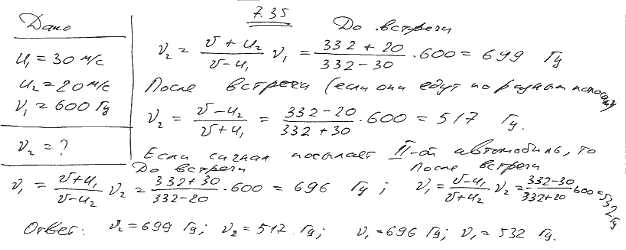 7.35
Дано
u₁ = 30 м/с
u₂ = 20 м/с
ν₁ = 600 Гц
ν₂ = ?
До встречи
ν₂ = (v + u₂)/(v - u₁) ν₁ = (332 + 20)/(332 - 30) · 600 = 699 Гц
После встречи (если они едут по разным полосам)
ν₂ = (v - u₂)/(v + u₁) = (332 - 20)/(332 + 30) · 600 = 517 Гц.
Если сигнал посылает II-ой автомобиль, то
До встречи После встречи
ν₁ = (v + u₁)/(v - u₂) ν₂ = (332 + 30)/(332 - 20) · 600 = 696 Гц ; ν₁ = (v - u₁)/(v + u₂) ν₂ = (332 - 30)/(332 + 20) 600 = 532 Гц
Ответ: ν₂ = 699 Гц; ν₂ = 517 Гц; ν₁ = 696 Гц; ν₁ = 532 Гц.